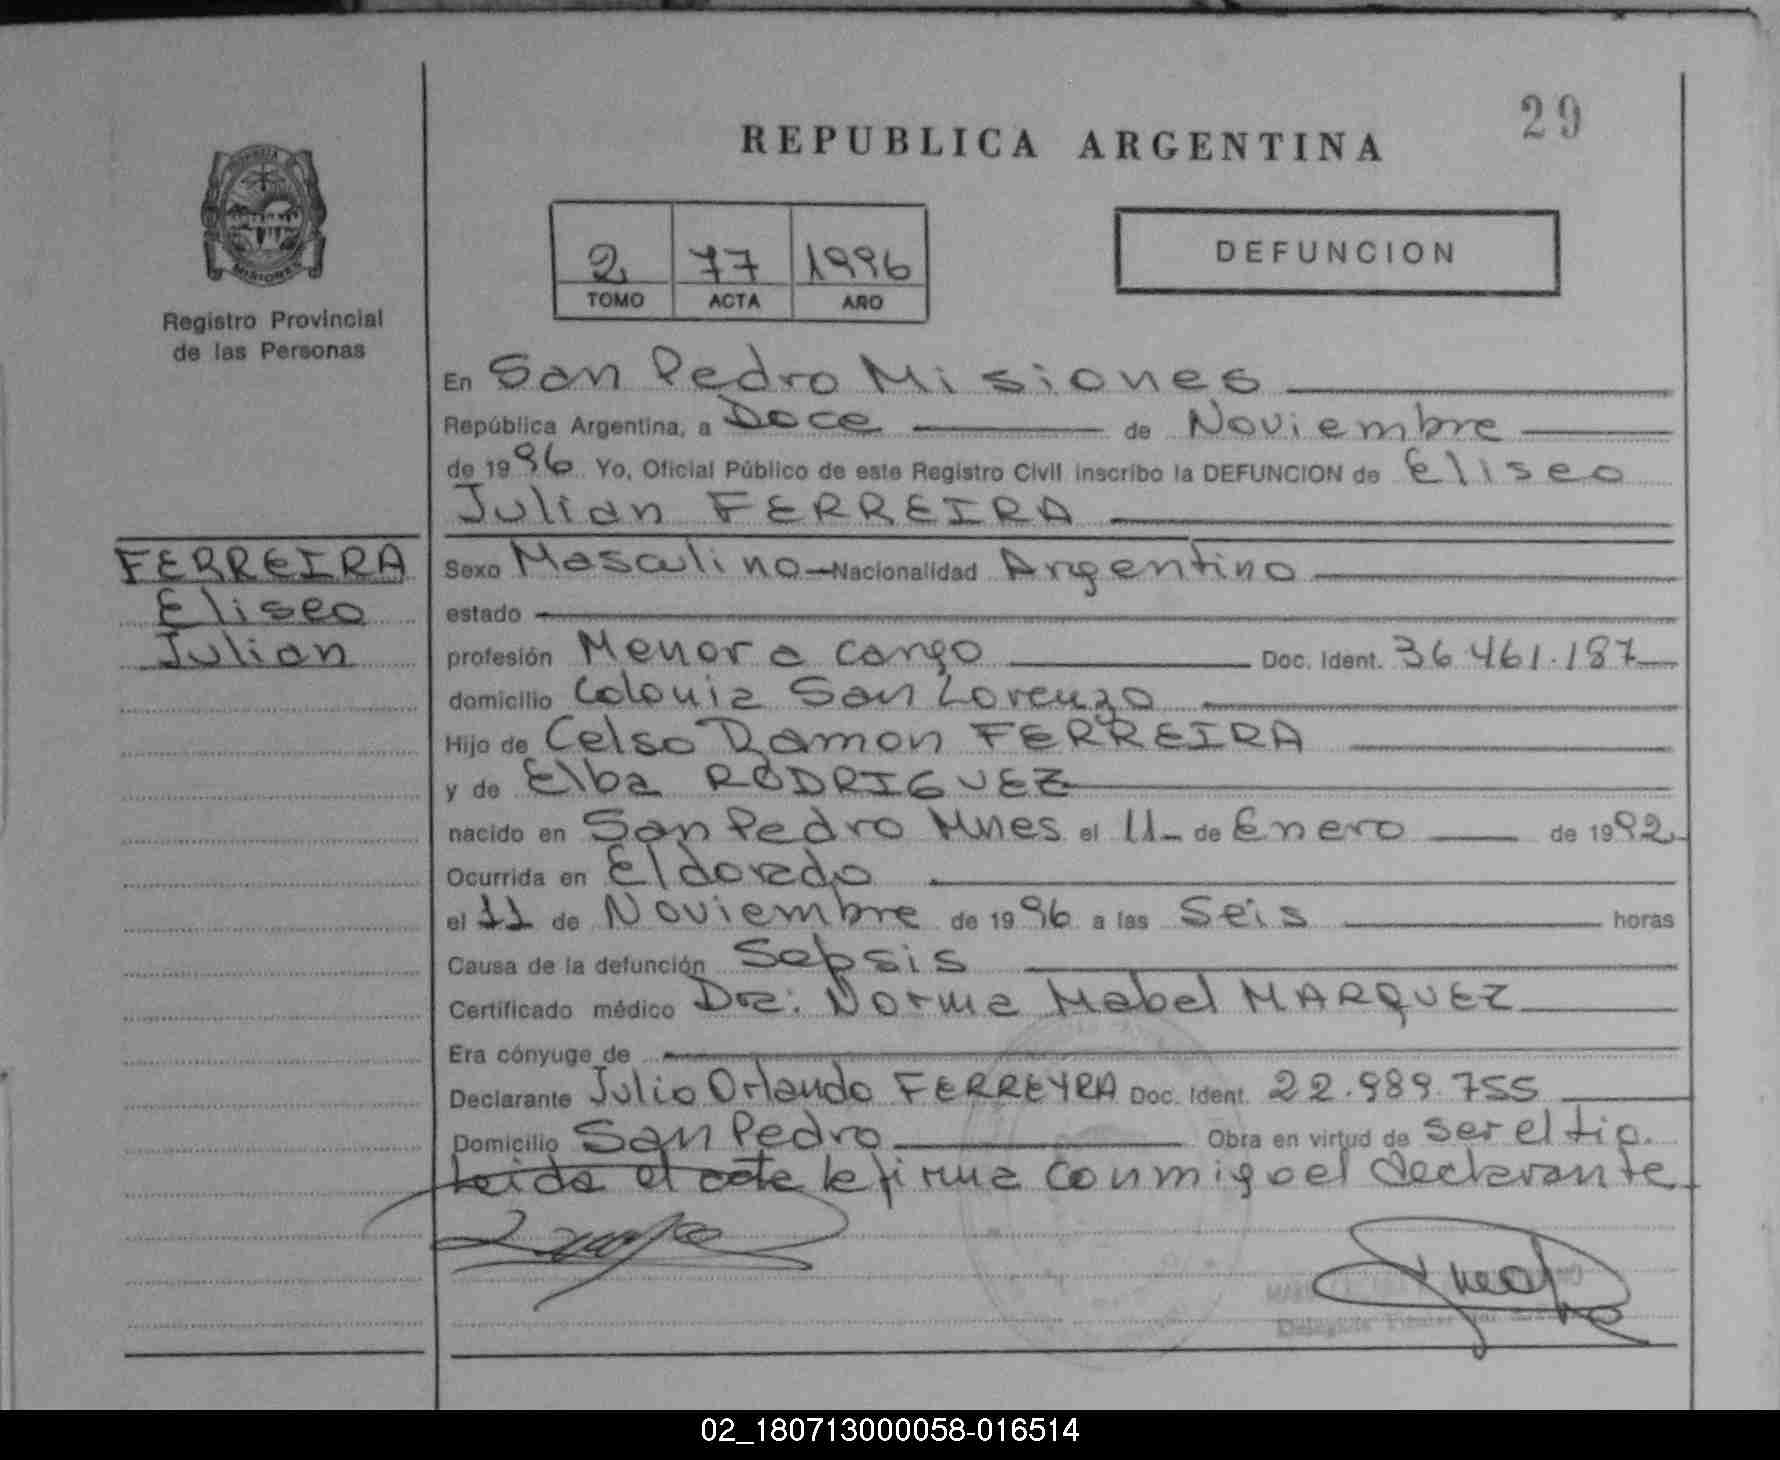 29
REPUBLICA ARGENTINA
MISIONES
Registro Provincial
de las Personas
2 77 1996
TOMO ACTA AÑO
DEFUNCION
En San Pedro Misiones
República Argentina, a Doce de Noviembre
de 1996 Yo, Oficial Público de este Registro Civil inscribo la DEFUNCION de Eliseo
Julian FERREIRA
FERREIRA
Eliseo
Julian
Sexo Masculino Nacionalidad Argentino
estado
profesión Menor a cargo Doc. Ident. 36.461.187
domicilio Colonia San Lorenzo
Hijo de Celso Ramon FERREIRA
y de Elba RODRIGUEZ
nacido en San Pedro Mnes el 11 de Enero de 1992
Ocurrida en Eldorado
el 11 de Noviembre de 1996 a las Seis horas
Causa de la defunción Sepsis
Certificado médico Dra: Norma Mabel MARQUEZ
Era cónyuge de
Declarante Julio Orlando FERREYRA Doc. Ident. 22.989.755
Domicilio San Pedro Obra en virtud de ser el tio.
Leida el acta la firma conmigo el declarante
02_180713000058-016514